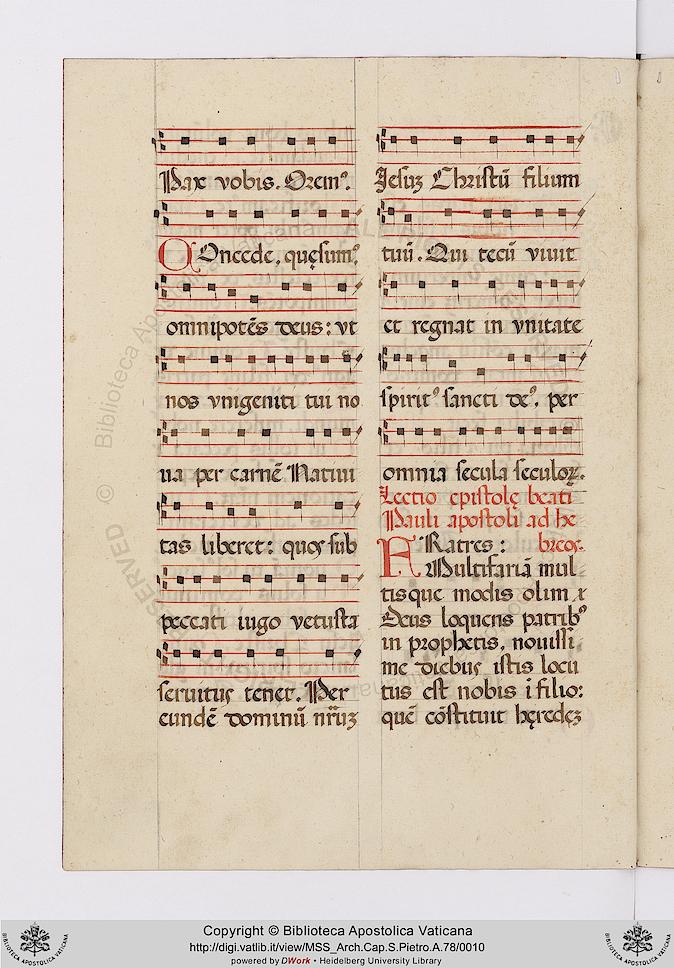 Pax vobis. Orem⁹.
COncede, quęsum⁹
omnipotēs deus: vt
nos vnigeniti tui no
ua per carnē Natiui
tas liberet: quos sub
peccati iugo vetusta
seruitus tenet. Per
eundē dominū nr̄uȝ
Jesuȝ Christū filium
tuū. Qui tecū viuit
et regnat in vnitate
spirit⁹ sancti de⁹, per
omnia secula seculoꝝ.
Lectio epistolę beati
Pauli apostoli ad he
breos.
FRatres:
Multifariā mul
tisque modis olim
Deus loquens patrib⁹
in prophetis, nouissi
me diebus istis locu
tus est nobis ī filio:
quē cōstituit hęredeȝ
RESERVED © Biblioteca Apostolica Vaticana
Copyright © Biblioteca Apostolica Vaticana
http://digi.vatlib.it/view/MSS_Arch.Cap.S.Pietro.A.78/0010
powered by DWork • Heidelberg University Library
BIBLIOTECA APOSTOLICA VATICANA
BIBLIOTECA APOSTOLICA VATICANA